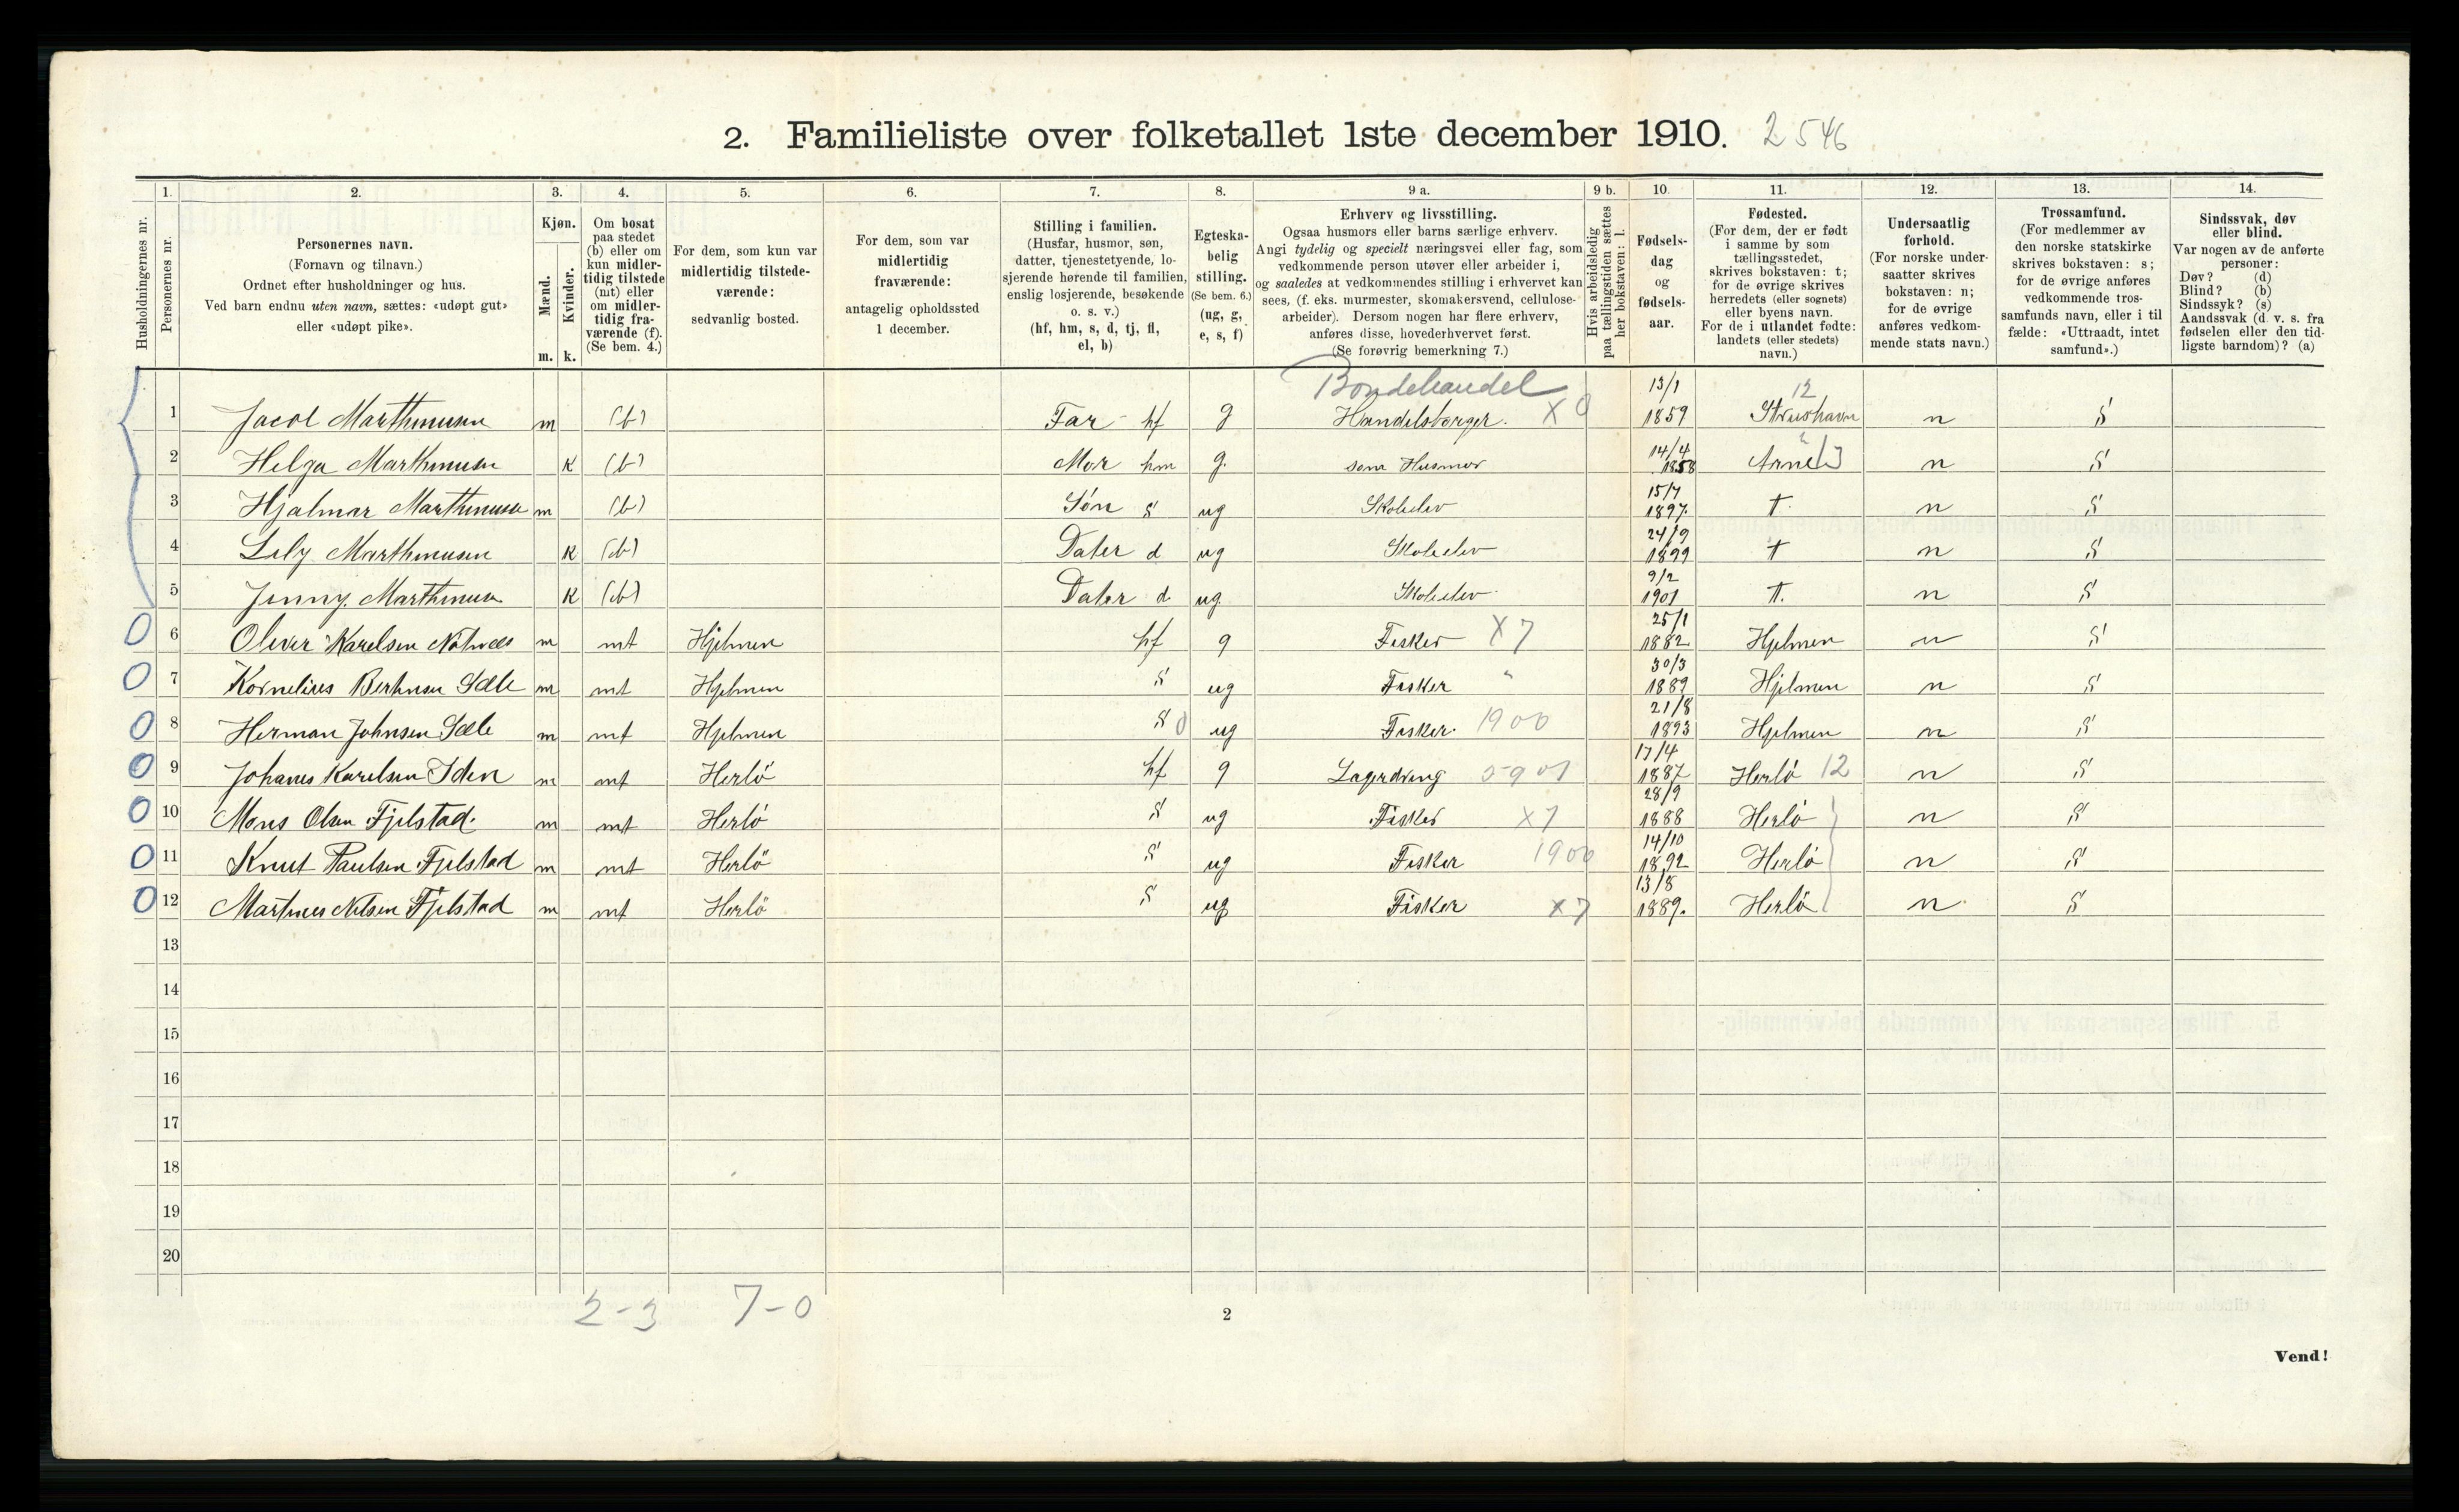 2. Familieliste over folketallet 1ste december 1910. 2546
Husholdningernes nr.
1. Personernes nr.
2. Personernes navn.
(Fornavn og tilnavn.)
Ordnet efter husholdninger og hus.
Ved barn endnu uten navn, sættes: «udøpt gut»
eller «udøpt pike».
3. Kjøn.
Mænd. m.
Kvinder. k.
4. Om bosat
paa stedet
(b) eller om
kun midler-
tidig tilstede
(mt) eller
om midler-
tidig fra-
værende (f).
(Se bem. 4.)
5. For dem, som kun var
midlertidig tilstede-
værende:
sedvanlig bosted.
6. For dem, som var
midlertidig
fraværende:
antagelig opholdssted
1 december.
7. Stilling i familien.
(Husfar, husmor, søn,
datter, tjenestetyende, lo-
sjerende hørende til familien,
enslig losjerende, besøkende
o. s. v.)
(hf, hm, s, d, tj, fl,
el, b)
8. Egteska-
belig
stilling.
(Se bem. 6.)
(ug, g,
e, s, f)
9 a. Erhverv og livsstilling.
Ogsaa husmors eller barns særlige erhverv.
Angi tydelig og specielt næringsvei eller fag, som
vedkommende person utøver eller arbeider i,
og saaledes at vedkommendes stilling i erhvervet kan
sees, (f. eks. murmester, skomakersvend, cellulose-
arbeider). Dersom nogen har flere erhverv,
anføres disse, hovederhvervet først.
(Se forøvrig bemerkning 7.)
9 b. Hvis arbeidsledig
paa tællingstiden sættes
her bokstaven: l.
10. Fødsels-
dag
og
fødsels-
aar.
11. Fødested.
(For dem, der er født
i samme by som
tællingsstedet,
skrives bokstaven: t;
for de øvrige skrives
herredets (eller sognets)
eller byens navn.
For de i utlandet fødte:
landets (eller stedets)
navn.)
12. Undersaatlig
forhold.
(For norske under-
saatter skrives
bokstaven: n;
for de øvrige
anføres vedkom-
mende stats navn.)
13. Trossamfund.
(For medlemmer av
den norske statskirke
skrives bokstaven: s;
for de øvrige anføres
vedkommende tros-
samfunds navn, eller i til
fælde: «Uttraadt, intet
samfund».)
14. Sindssvak, døv
eller blind.
Var nogen av de anførte
personer:
Døv? (d)
Blind? (b)
Sindssyk? (s)
Aandssvak (d. v. s. fra
fødselen eller den tid-
ligste barndom)? (a)
Bondehandel 13/1 12
1 Jacob Marthinusen m (b) Far hf g Handelsborger. X 0 1859 n S
2 Helga Marthinusen k (b) Mor hm g. som Husmor 14/4 1858 Arne 13 n S
3 Hjalmar Marthinusen m (b) Søn s ug Skoleelev 15/7 1897. t n S
4 Lily Marthinusen k (b) Dater d ug Skoleelev 24/9 1899 t n S
5 Jenny. Marthinusen k (b) Dater d. ug. Skoleelev 9/2 1901 t. n S
0 6 Oliver Karelsen m mt Hjelmen hf g Fisker X7 25/1 1882 Hjelmen n S
0 7 Kornelius Berntsen Sæle m mt Hjelmen S ug Fisker " 30/3 1889 Hjelmen n S
0 8 Herman Johnsen Sæle m mt Hjelmen S 0 ug Fisker. 1900 21/8 1893 Hjelmen n S
0 9 Johanes Karelsen Iden m mt Herlö hf g Lagerdreng 5901 17/4 1887 Herlö 12 n S
0 10 Mons Olsen Fjelstad. m mt Herlö S ug Fisker X7 28/9 1888 Herlö n S
0 11 Knut Paulsen Fjelstad m mt Herlö S ug Fisker 1900 14/10 1892 Herlö n S
0 12 Martinus Nilsen Fjelstad m mt Herlö S ug Fisker X7 13/8 1889. Herlö n S
13
14
15
16
17
18
19
20
2-3 7-0
2
Vend!